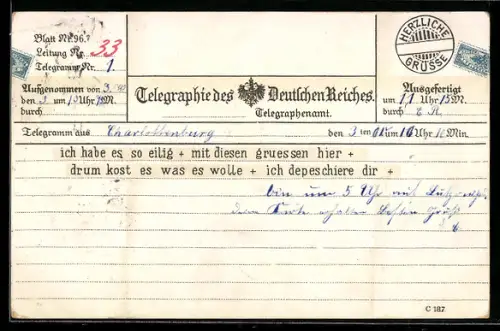 Blatt Nr. 96.
Leitung Nr. 33
Telegramm Nr. 1.
Aufgenommen von
den 3 um 10 Uhr 15 M.
durch
Telegraphie des Deutschen Reiches.
Telegraphenamt.
HERZLICHE
GRÜSSE
Ausgefertigt
um 11 Uhr 15 M.
durch E. R.
Telegramm aus Charlottenburg den 3 ten um 10 Uhr 10 Min.
ich habe es so eilig + mit diesen gruessen hier +
drum kost es was es wolle + ich depeschiere dir +
bin um 5 Uhr mit
Karte erhalten besten Gruß
C 187